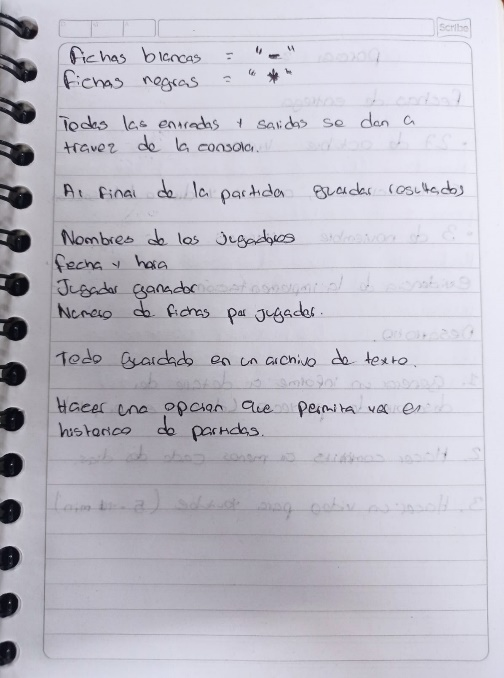 Scribe
fichas blancas = "-"
fichas negras = "*"
Todas las entradas y salidas se dan a
travez de la consola.
Al final de la partida guardar resultados
Nombres de los jugadores
fecha y hora
Jugador ganador
Numero de fichas por jugador.
Todo Guardado en un archivo de texto.
Hacer una opcion que permita ver el
historico de partidas.